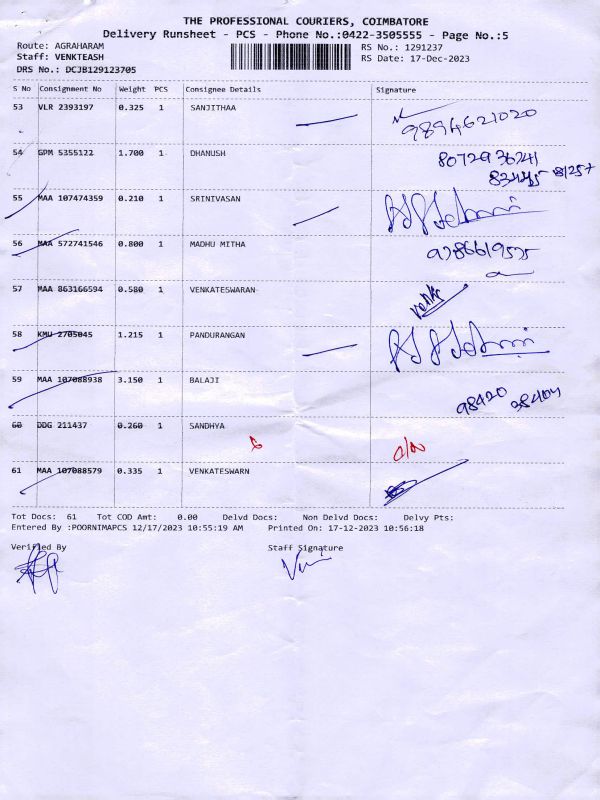 THE PROFESSIONAL COURIERS, COIMBATORE
Delivery Runsheet - PCS - Phone No.:0422-3505555 - Page No.:5
Route: AGRAHARAM
RS No.: 1291237
Staff: VENKTEASH
RS Date: 17-Dec-2023
DRS No.: DCJB129123705
S No Consignment No Weight PCS Consignee Details Signature
53 VLR 2393197 0.325 1 SANJITHAA
9894621020
54 GPM 5355122 1.700 1 DHANUSH
8072936241
55 MAA 107474359 0.210 1 SRINIVASAN
56 MAA 572741546 0.800 1 MADHU MITHA
9786619575
57 MAA 863166594 0.580 1 VENKATESWARAN
58 KMU 2705045 1.215 1 PANDURANGAN
59 MAA 107088938 3.150 1 BALAJI
98420 38404
60 DDG 211437 0.260 1 SANDHYA
61 MAA 107088579 0.335 1 VENKATESWARN
Tot Docs: 61 Tot COD Amt: 0.00 Delvd Docs: Non Delvd Docs: Delvy Pts:
Entered By :POORNIMAPCS 12/17/2023 10:55:19 AM Printed On: 17-12-2023 10:56:18
Verified By Staff Signature